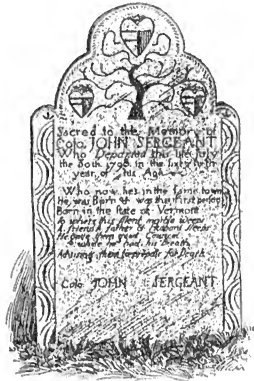 Sacred to the Memory of
Colo. JOHN SERGEANT
Who Departed this life July
the 30th 1798. in the sixty sixth
year of his Age
Who now lies in the same town
He was Born & was the first person
Born in the State of Vermont
A friend a father & Husband sleeps
He gave them good Council
while he had his Breath
Advising them to prepair for Death
Colo JOHN SERGEANT